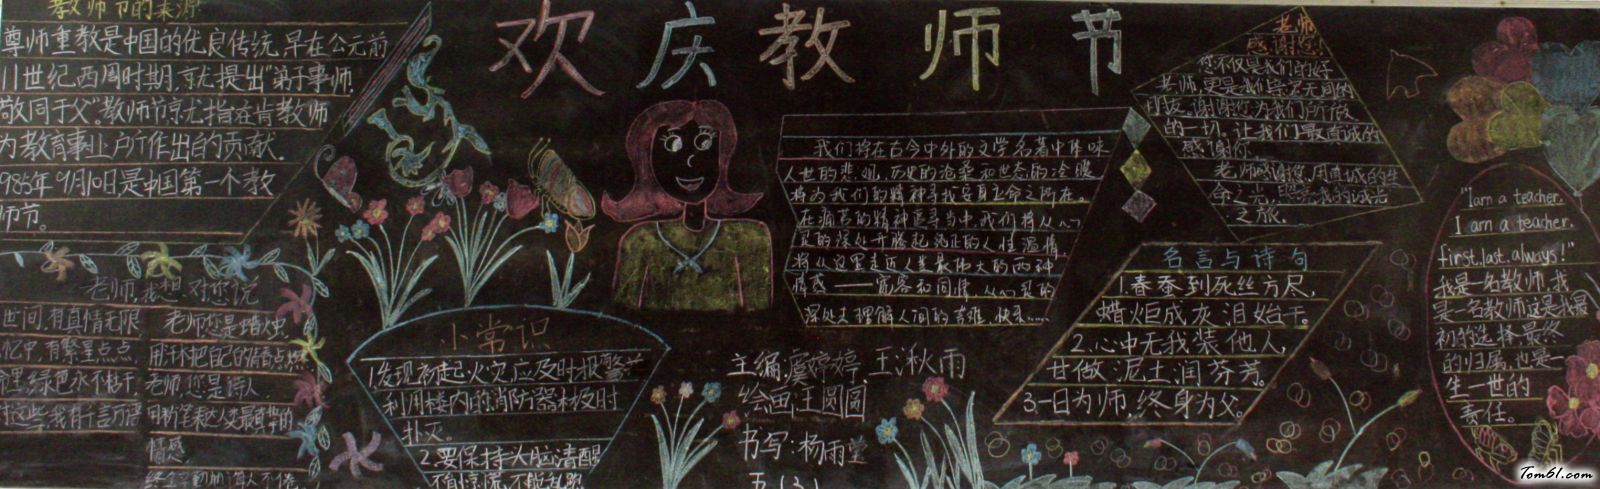 欢庆教师节
教师节的来源
尊师重教是中国的优良传统,早在公元前
11世纪西周时期,就提出"弟子事师,
敬同于父"教师节就指在肯教师
为教育事业所作出的贡献.
1985年9月10日是中国第一个教
师节。
老师,我想对您说
世间,有真情无限
忆中,有繁星点点,
里,绿色永不枯干,
这些,我有千言万语
老师您是蜡烛,
用
老师,您是诗人
用粉笔表达人类最真挚的
情感.
小常识
1.发现初起火灾,应及时报警并
利用楼内的消防器材及时
扑灭。
2.要保持头脑清醒
我们将在古今中外的文学名著中体味
人世的悲欢,历史的沧桑和世态的冷暖
将为我们的精神寻找安身立命之所在.
的精神追寻当中,我们将从心
灵的深处升腾起纯正的人性温情,
将从这里走近人类最伟大的两种
情感——宽容和同情,从心灵的
深处去理解人间的苦难、快乐……
主编:虞婷婷,王湫雨
绘画:王圆圆
书写:杨雨莹
五(3)
老师
感谢您!
您不仅是我们的好
老师,更是我们亲密无间的
朋友,谢谢您为我们所做
的一切.让我们最真诚的
感谢你.
老师感谢您,用真诚的生
命之光,照亮我的成长
之旅.
名言与诗句
1.春蚕到死丝方尽,
蜡炬成灰泪始干。
2.心中无我装他人,
甘做泥土润芬芳。
3.一日为师,终身为父。
"I am a teacher.
I am a teacher.
first.last.always!"
我是一名教师,我
是一名教师这是我最
初的选择,最终
的归属,也是一
生一世的
责任。
Tom61.com